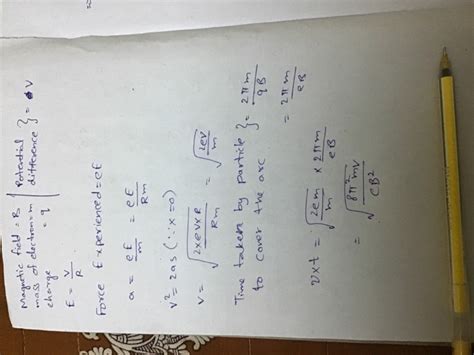 Magnetic field = B
mass of electron = m } Potential difference } = V
charge = q
E = V/R
Force Experienced = eE
a = eE/m = eE/Rm
v² = 2as (∵ x = 0)
v = √(2×eV×R/Rm) = √(2eV/m)
Time taken by particle } = 2πm/qB
to cover the arc
= 2πm/eB
v×t = √(2em/m) × 2πm/eB
= √(8π²mV/eB²)